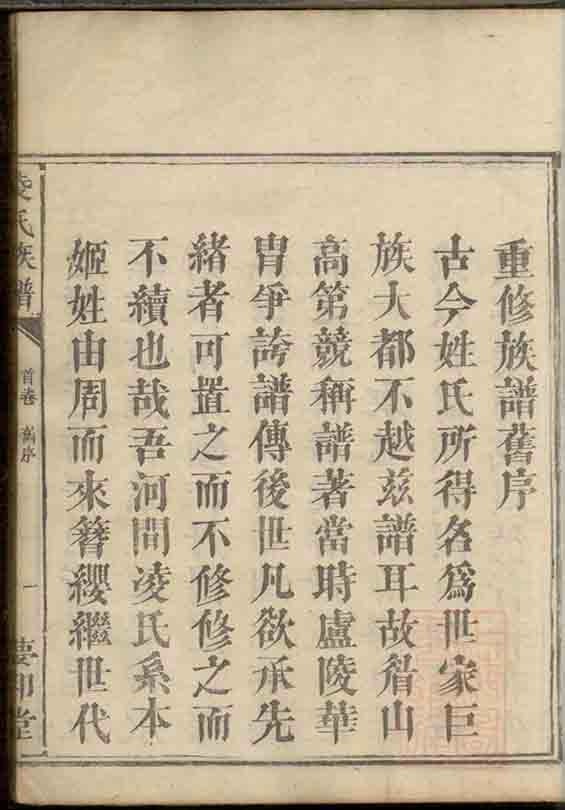 重修族譜舊序
古今姓氏所得名爲世家巨
族大都不越茲譜耳故眉山
高第競稱譜著當時盧陵華
胄爭誇譜傳後世凡欲承先
緒者可置之而不修修之而
不續也哉吾河間凌氏系本
姬姓由周而來簪纓繼世代
凌氏族譜
首卷 舊序
一
堂